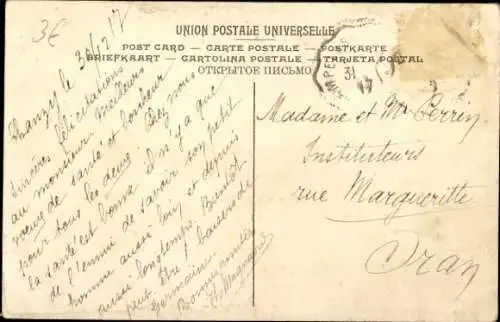 3€
UNION POSTALE UNIVERSELLE
POST CARD – CARTE POSTALE – POSTKARTE
BRIEFKAART – CARTOLINA POSTALE – TARJETA POSTAL
ОТКРЫТОЕ ПИСЬМО
31
Chanzy le 30/12 17
Sincères félicitations
au monsieur Meilleurs
vœux de santé et bonheur
pour tous les deux. Chez nous
la santé est bonne il n'y a que
de l'ennui de savoir son petit
homme aussi loin et depuis
aussi longtemps. Bientôt
peut être! baisers de
Germaine
Bonne année
Madame et Mr Perrin
Instituteurs
rue Margueritte
Oran